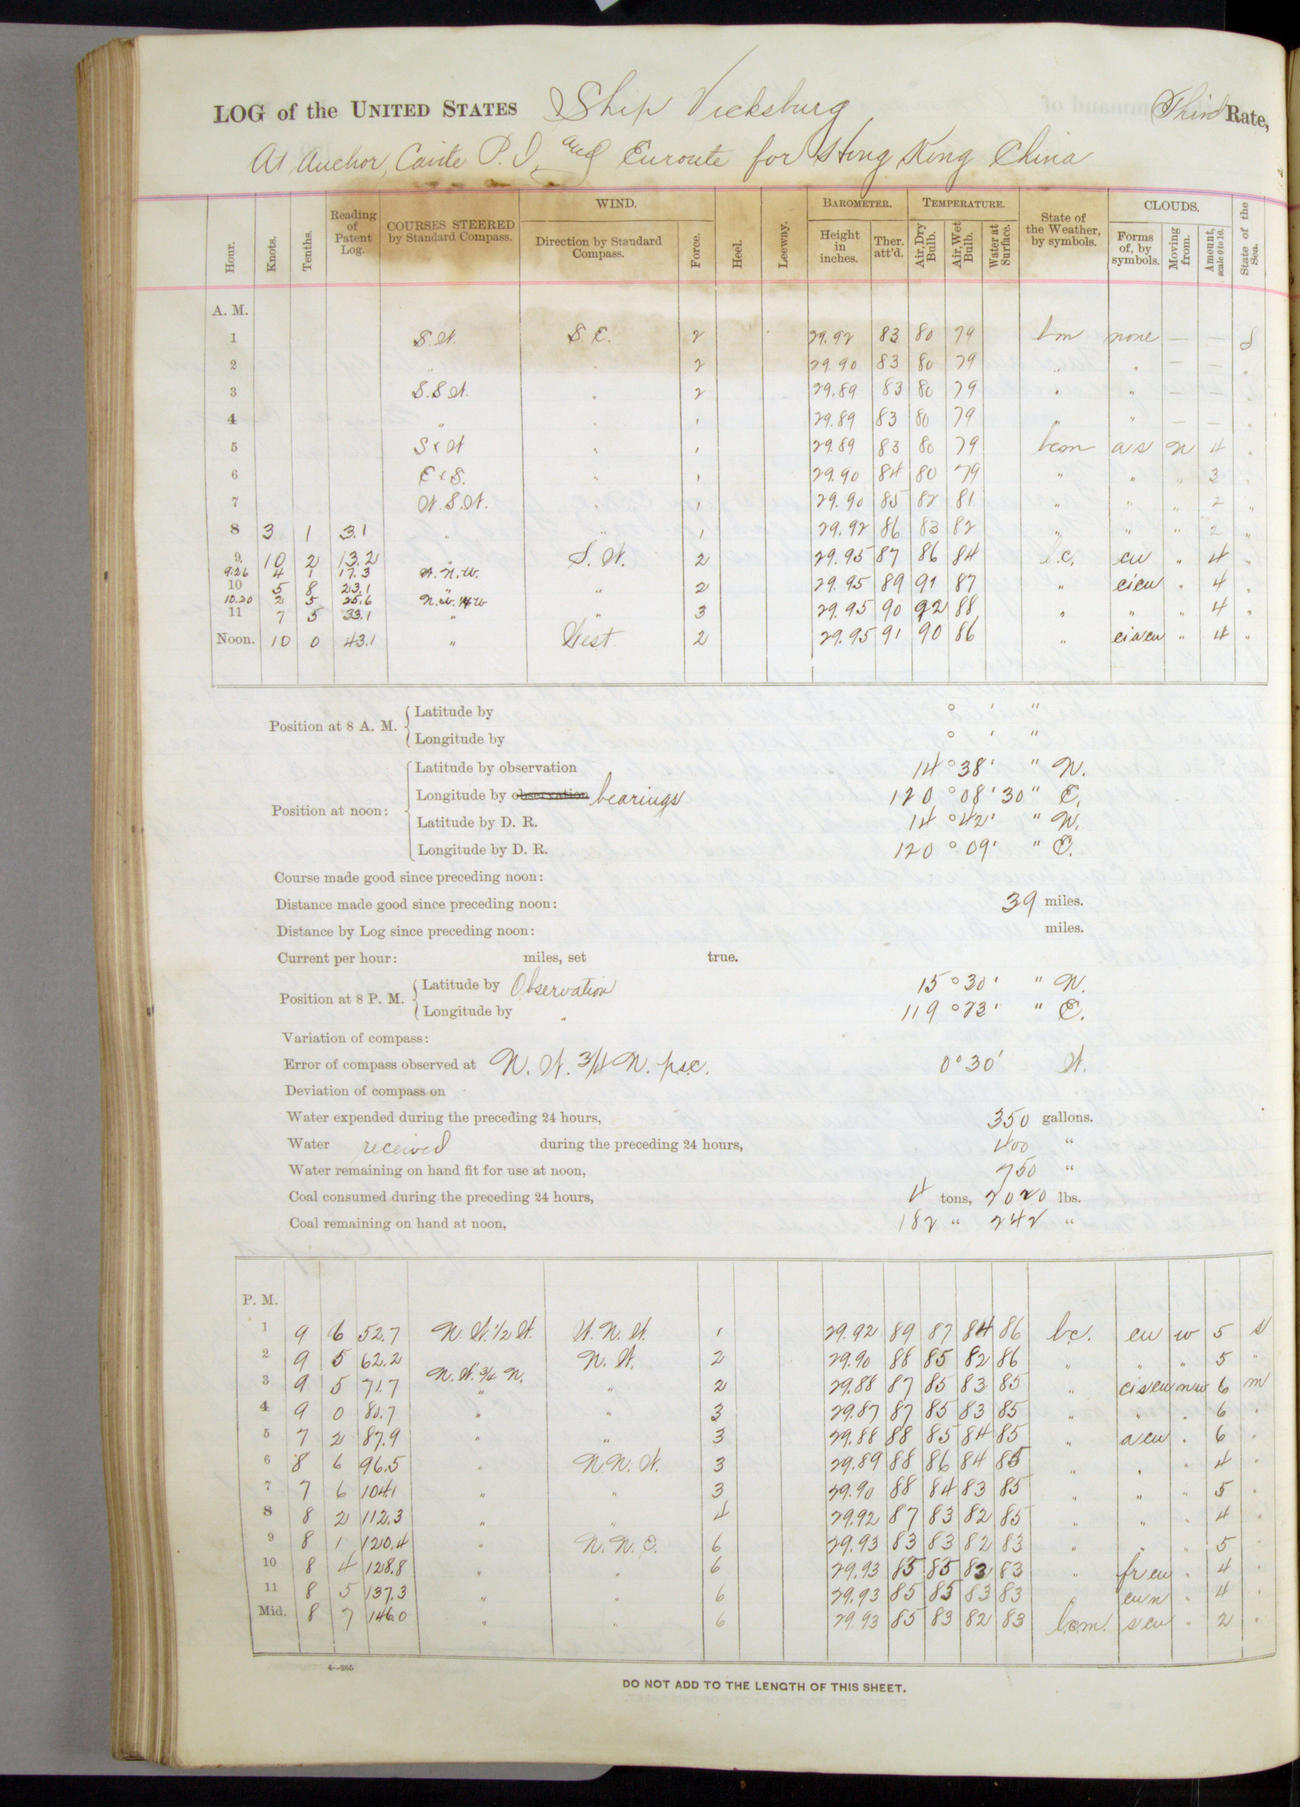 LOG of the UNITED STATES Ship Vicksburg Third Rate,
At Anchor, Cavite P.I. and Enroute for Hong Kong China
Hour. Knots. Tenths. Reading of Patent Log. COURSES STEERED by Standard Compass. WIND. Direction by Standard Compass. Force. Heel. Leeway. BAROMETER. Height in inches. Ther. att'd. TEMPERATURE. Air, Dry Bulb. Air, Wet Bulb. Water at Surface. State of the Weather, by symbols. CLOUDS. Forms of, by symbols. Moving from. Amount, scale 0 to 10. State of the Sea.
A. M.
1 S.W. S.E. 2 29.92 83 80 79 bm none — — S
2 " " 2 29.90 83 80 79 " " — — "
3 S.S.W. " 2 29.89 83 80 79 " " — — "
4 " " " 29.89 83 80 79 " " — — "
5 SxW " " 29.89 83 80 79 bcm as n 4 "
6 ExS. " " 29.90 84 80 79 " " " 3 "
7 W.S.W. " 1 29.90 85 82 81 " " " 2 "
8 3 1 3.1 " " 1 29.92 86 83 82 " " " 2 "
9. 10 2 13.2 " S.W. 2 29.95 87 86 84 b.c. cu " 4 "
9.26 4 1 17.3 N.N.W.
10 5 8 23.1 " " 2 29.95 89 91 87 " cicu " 4 "
10.20 2 5 25.6 N.W.1/4W
11 7 5 33.1 " " 3 29.95 90 92 88 " " " 4 "
Noon. 10 0 43.1 " West 2 29.95 91 90 86 " ciacu " 4 "
Position at 8 A. M. Latitude by ° ' "
Longitude by ° ' "
Position at noon: Latitude by observation 14 ° 38' " N.
Longitude by observation bearings 120 ° 08' 30" E.
Latitude by D. R. 14 ° 42' " N.
Longitude by D. R. 120 ° 09' " E.
Course made good since preceding noon:
Distance made good since preceding noon: 39 miles.
Distance by Log since preceding noon: miles.
Current per hour: miles, set true.
Position at 8 P. M. Latitude by Observation 15 ° 30' " N.
Longitude by " 119 ° 23' " E.
Variation of compass:
Error of compass observed at N. W. 3/4 N. p.s.c. 0° 30' W.
Deviation of compass on
Water expended during the preceding 24 hours, 350 gallons.
Water received during the preceding 24 hours, 400 "
Water remaining on hand fit for use at noon, 750 "
Coal consumed during the preceding 24 hours, 4 tons, 2020 lbs.
Coal remaining on hand at noon, 182 " 242 "
P. M.
1 9 6 52.7 N.W.1/2W. W.N.W. 1 29.92 89 87 84 86 b.c. cu w 5 s
2 9 5 62.2 " N.W. 2 29.90 88 85 82 86 " " " 5 "
3 9 5 71.7 N.W.3/4N. " 2 29.88 87 85 83 85 " ciscu nw 6 m
4 9 0 80.7 " " 3 29.87 87 85 83 85 " " " 6 "
5 7 2 87.9 " " 3 29.88 88 85 84 85 " acu " 6 "
6 8 6 96.5 " NN.W. 3 29.89 88 86 84 85 " " " 4 "
7 7 6 104.1 " " 3 29.90 88 84 83 85 " " " 5 "
8 8 2 112.3 " " 4 29.92 87 83 82 85 " " " 4 "
9 8 1 120.4 " N.N.E. 6 29.93 83 83 82 83 " " " 5 "
10 8 4 128.8 " " 6 29.93 85 85 83 83 frcu " 4 "
11 8 5 137.3 " " 6 29.93 85 85 83 83 cun " 4 "
Mid. 8 7 146.0 " " 6 29.93 85 83 82 83 b.c.m. scu " 2 "
4—265
DO NOT ADD TO THE LENGTH OF THIS SHEET.